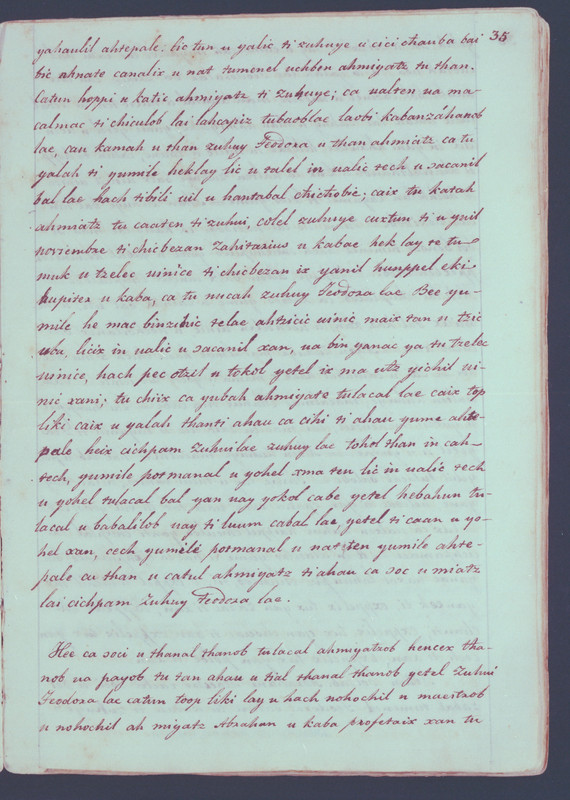 35
yahaulil ahtepale: lic tun u yalic ti zuhuye u cici ctauba bai
bic ahnate canalix u nat tumenel uchben ahmiyatz tu than.
Catun hoppi u katic ahmiyatz ti zuhuye; ca ualten ua ma-
calmac ti chiculob lai lahcapiz tubaoblac laobi kabanzáhanob
lae, cau kamah u than zuhuy Teodora u than ahmiatz ca tu
yalah ti yumile heklay lic u talel in ualic tech u sacanil
bal lae hach tibili uil u hantabal chichobic; caix tu katah
ahmiatz tu caaten ti zuhui, colel zuhuye cuxtun ti u yuil
noviembre ti chicbezan Zahitarius u kabae hek lay te tu-
muk u tzelec uinice ti chicbezan ix yanil hunppel eki
Kupiter u kaba, ca tu nucah zuhuy Teodora lae Bee yu-
mile he mac binzihic telae ahtzicic uinic maix tan u tzic
uba, licix in ualic u sacanil xan, ua bin yanac ya tu tzelec
uinice, hach pec otzil u tzkol yetel ix ma utz yichil ui-
nic xani; tu chiix ca yubah ahmiyatz tulacal lae caix top
liki caix u yalah thanti ahau ca cihi ti ahau yume ahte-
pale heix cichpam Zuhuilae zuhuy lac tohol than in cah-
tech, yumile potmanal u yohel xma ten lic in ualic tech
u yohel tulacal bal yan uay yokol cabe yetel hebahun tu-
lacal u babalilob uay ti luum cabal lae, yetel ti caan u yo-
hel xan, cech yumile potmanal u nat ten yumile ahte-
pale cu than u catul ahmiyatz ti ahau ca soc u miatz
lai cichpam Zuhuy Teodora lae.
Hee ca soci u thanal thanob tulacal ahmiyatzob hencex tha-
nob ua payob tu tan ahau u tial thanal thanob yetel Zuhui
Teodora lac catun toop liki lay u hach nohochil u maestrob
u nohochil ah miyatz Abrahan u kaba profetaix xan tu